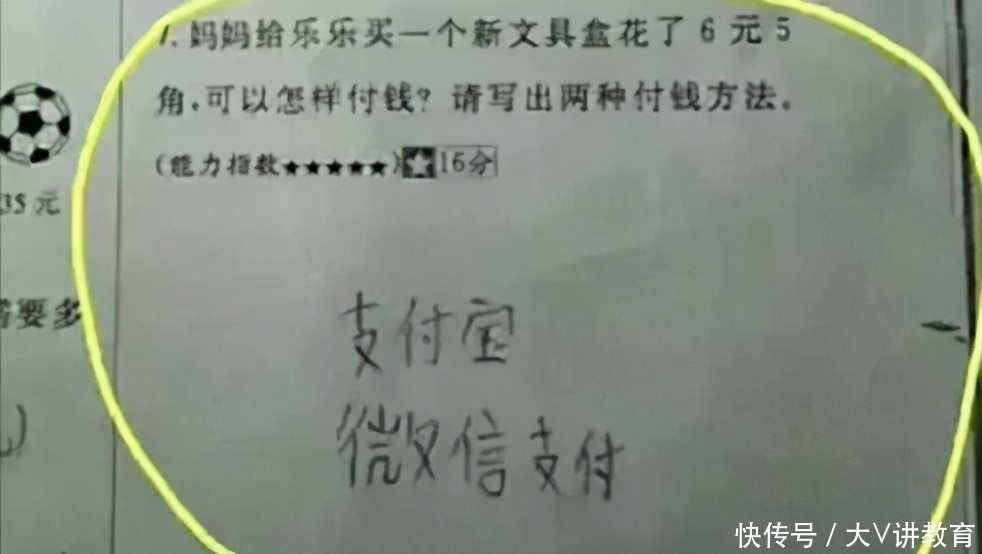 7. 妈妈给乐乐买一个新文具盒花了 6 元 5
角,可以怎样付钱? 请写出两种付钱方法。
(能力指数★★★★★) 16分
35 元
需要多
支付宝
微信支付
快传号 / 大V讲教育